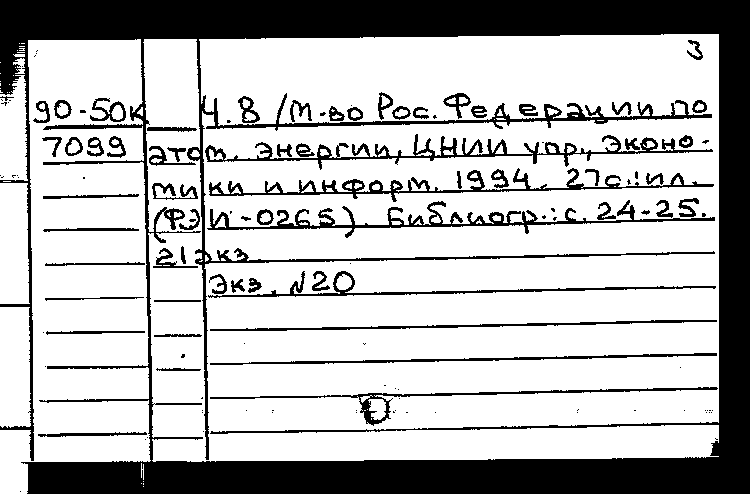 3
90-50к Ч.8 /М-во Рос. Федерации по
7099 атом. энергии, ЦНИИ упр., эконо-
мики и информ. 1994. 27с.:ил.
(ФЭИ-0265). Библиогр.:с. 24-25.
21экз
Экз. №20